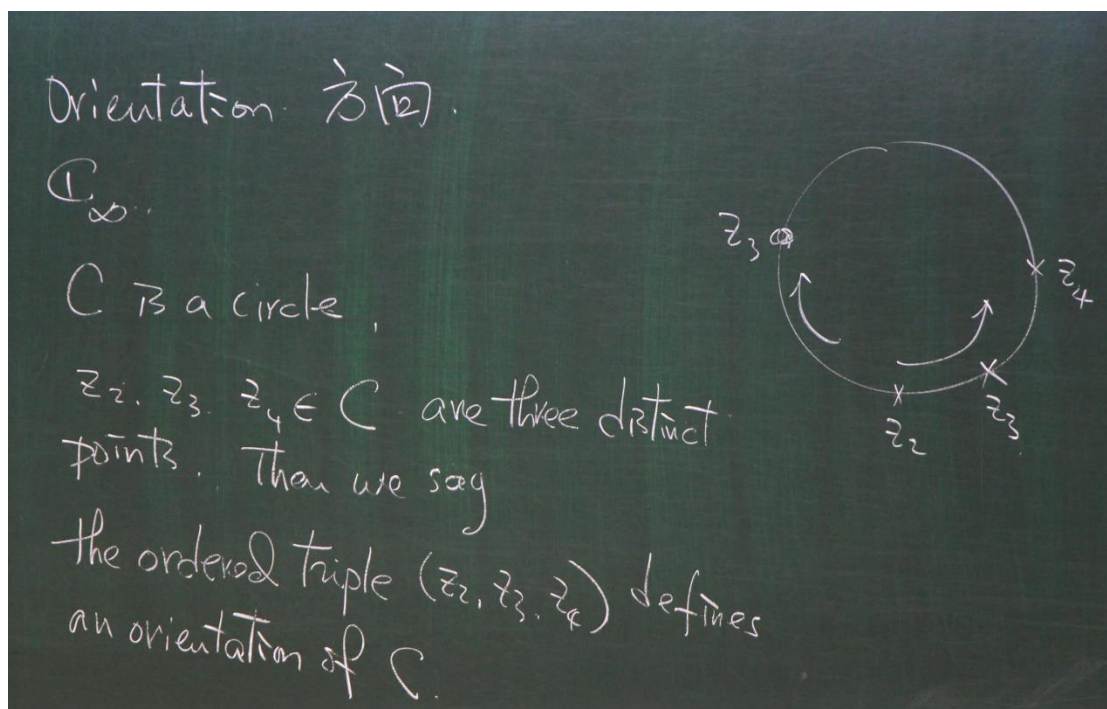 Orientation. 方向.
ℂ∞.
C is a circle,
z₂, z₃, z₄ ∈ C are three distinct
points. Then we say
the ordered triple (z₂, z₃, z₄) defines
an orientation of C.
z₃
z₄
z₃
z₂